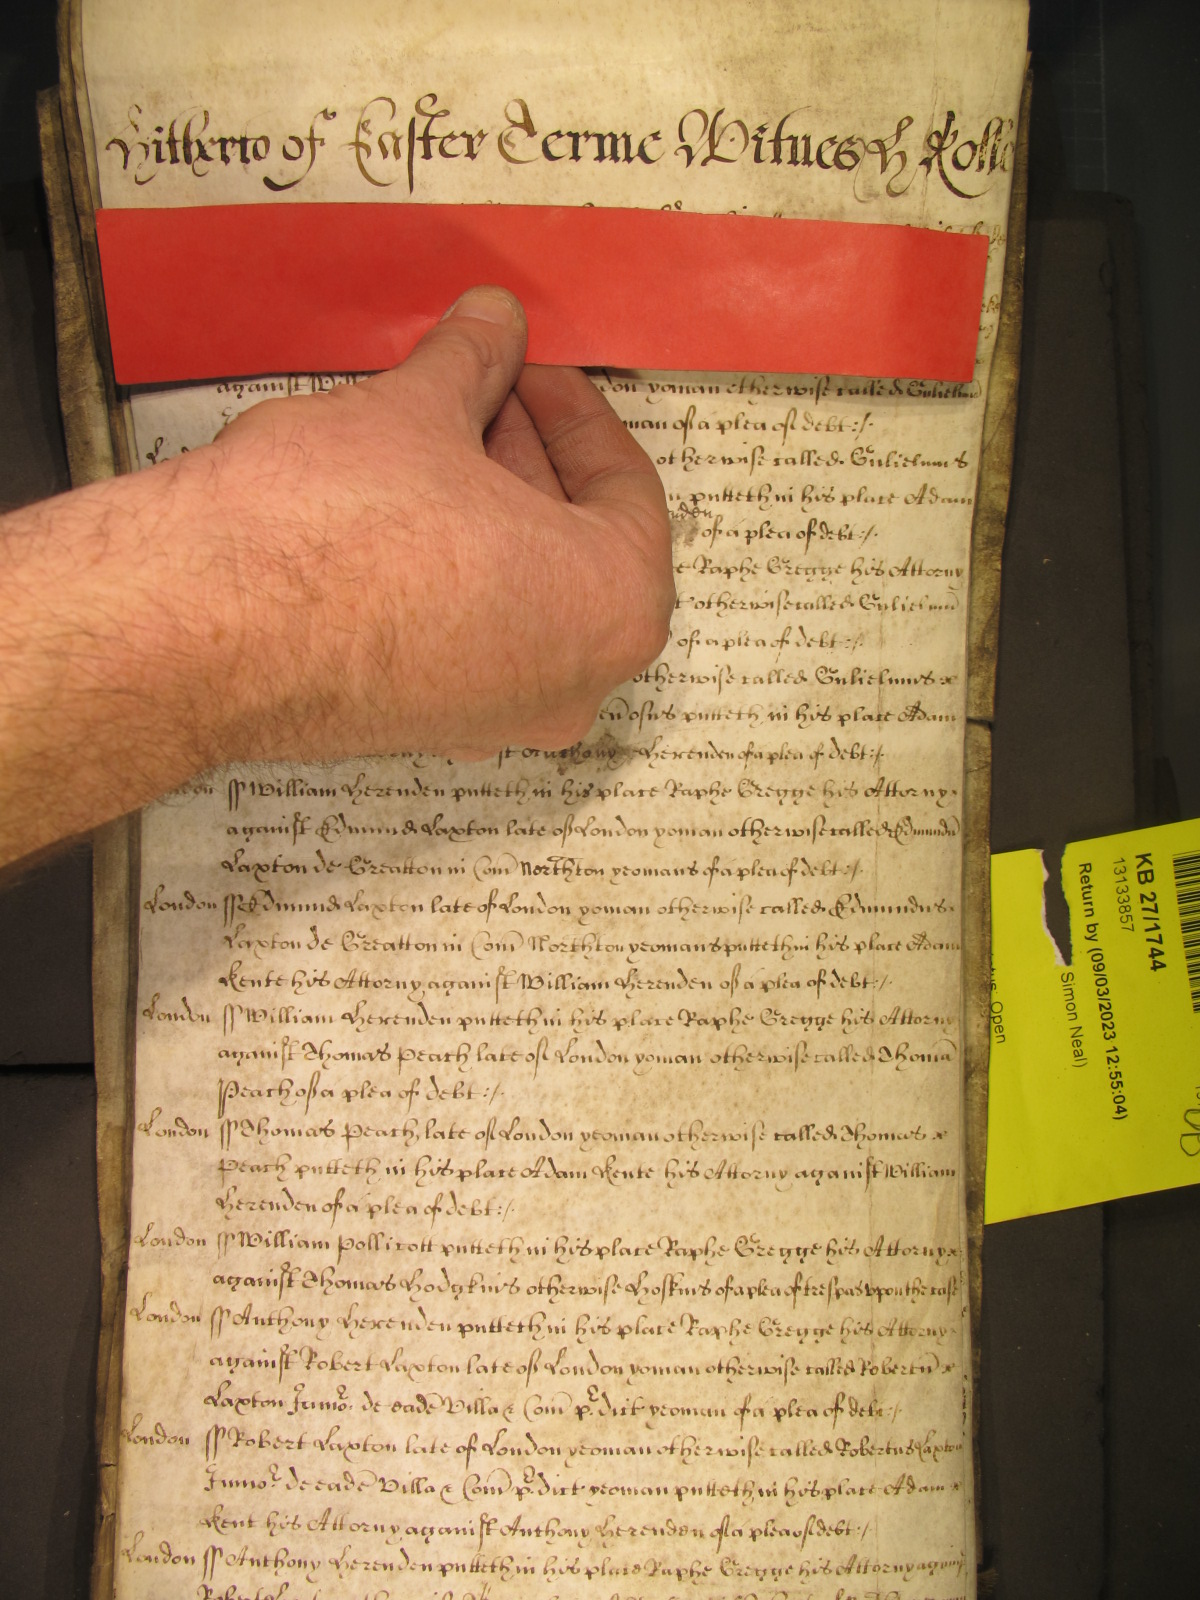 Hitherto of Easter Terme Witnes H Rolle
against Will don yoman otherwise called Gulielmus
man of a plea of debt:/.
otherwise called Gulielmus
n putteth in his place Adam
enden
of a plea of debt:/.
e Raphe Gregge his Attorny
t otherwise called Gulielmū
of a plea of debt:/.
otherwise called Gulielmus
putteth in his place Adam
st Anthony Herenden of a plea of debt:/.
don ss William Herenden putteth in his place Raphe Gregge his Attorny
against Edmund Laxton late of London yoman otherwise called Edmundū
Laxton de Greatton in Com̄ Northton yeomans of a plea of debt:/.
London ss Edmund Laxton late of London yoman otherwise called Edmundus
Laxton de Greatton in Com̄ Northton yeomans putteth in his place Adam
Kente his Attorny against William Herenden of a plea of debt:/.
London ss William Herenden putteth in his place Raphe Gregge his Attorny
against Thomas Peach late of London yoman otherwise called Thomā
Peach of a plea of debt:/.
London ss Thomas Peach late of London yeoman otherwise called Thomas
Peach putteth in his place Adam Kente his Attorny against William
Herenden of a plea of debt:/.
London ss William Pollicott putteth in his place Raphe Gregge his Attorny
against Thomas Hodgkins otherwise Hoskins of a plea of trespas upon the case
London ss Anthony Herenden putteth in his place Raphe Gregge his Attorny
against Robert Laxton late of London yoman otherwise called Robertū
Laxton Junior de eadē Villa & Com̄ p dict yeoman of a plea of debt:/.
London ss Robert Laxton late of London yeoman otherwise called Robertus Laxton
Junior de eadē Villa & Com̄ p dict yeoman putteth in his place Adam
Kent his Attorny against Anthony Herenden of a plea of debt:/.
London ss Anthony Herenden putteth in his place Raphe Gregge his Attorny against
KB 27/1744
13133857
Return by (09/03/2023 12:55:04)
Simon Neal)
Open